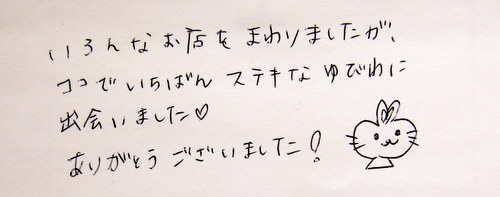 いろんなお店をまわりましたが、
ココでいちばん ステキな ゆびわに
出会いました♡
ありがとう ございました!